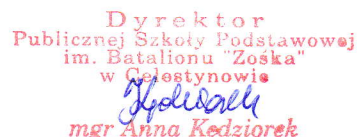 Dyrektor
Publicznej Szkoły Podstawowej
im. Batalionu "Zośka"
w Celestynowie
mgr Anna Kędziorek